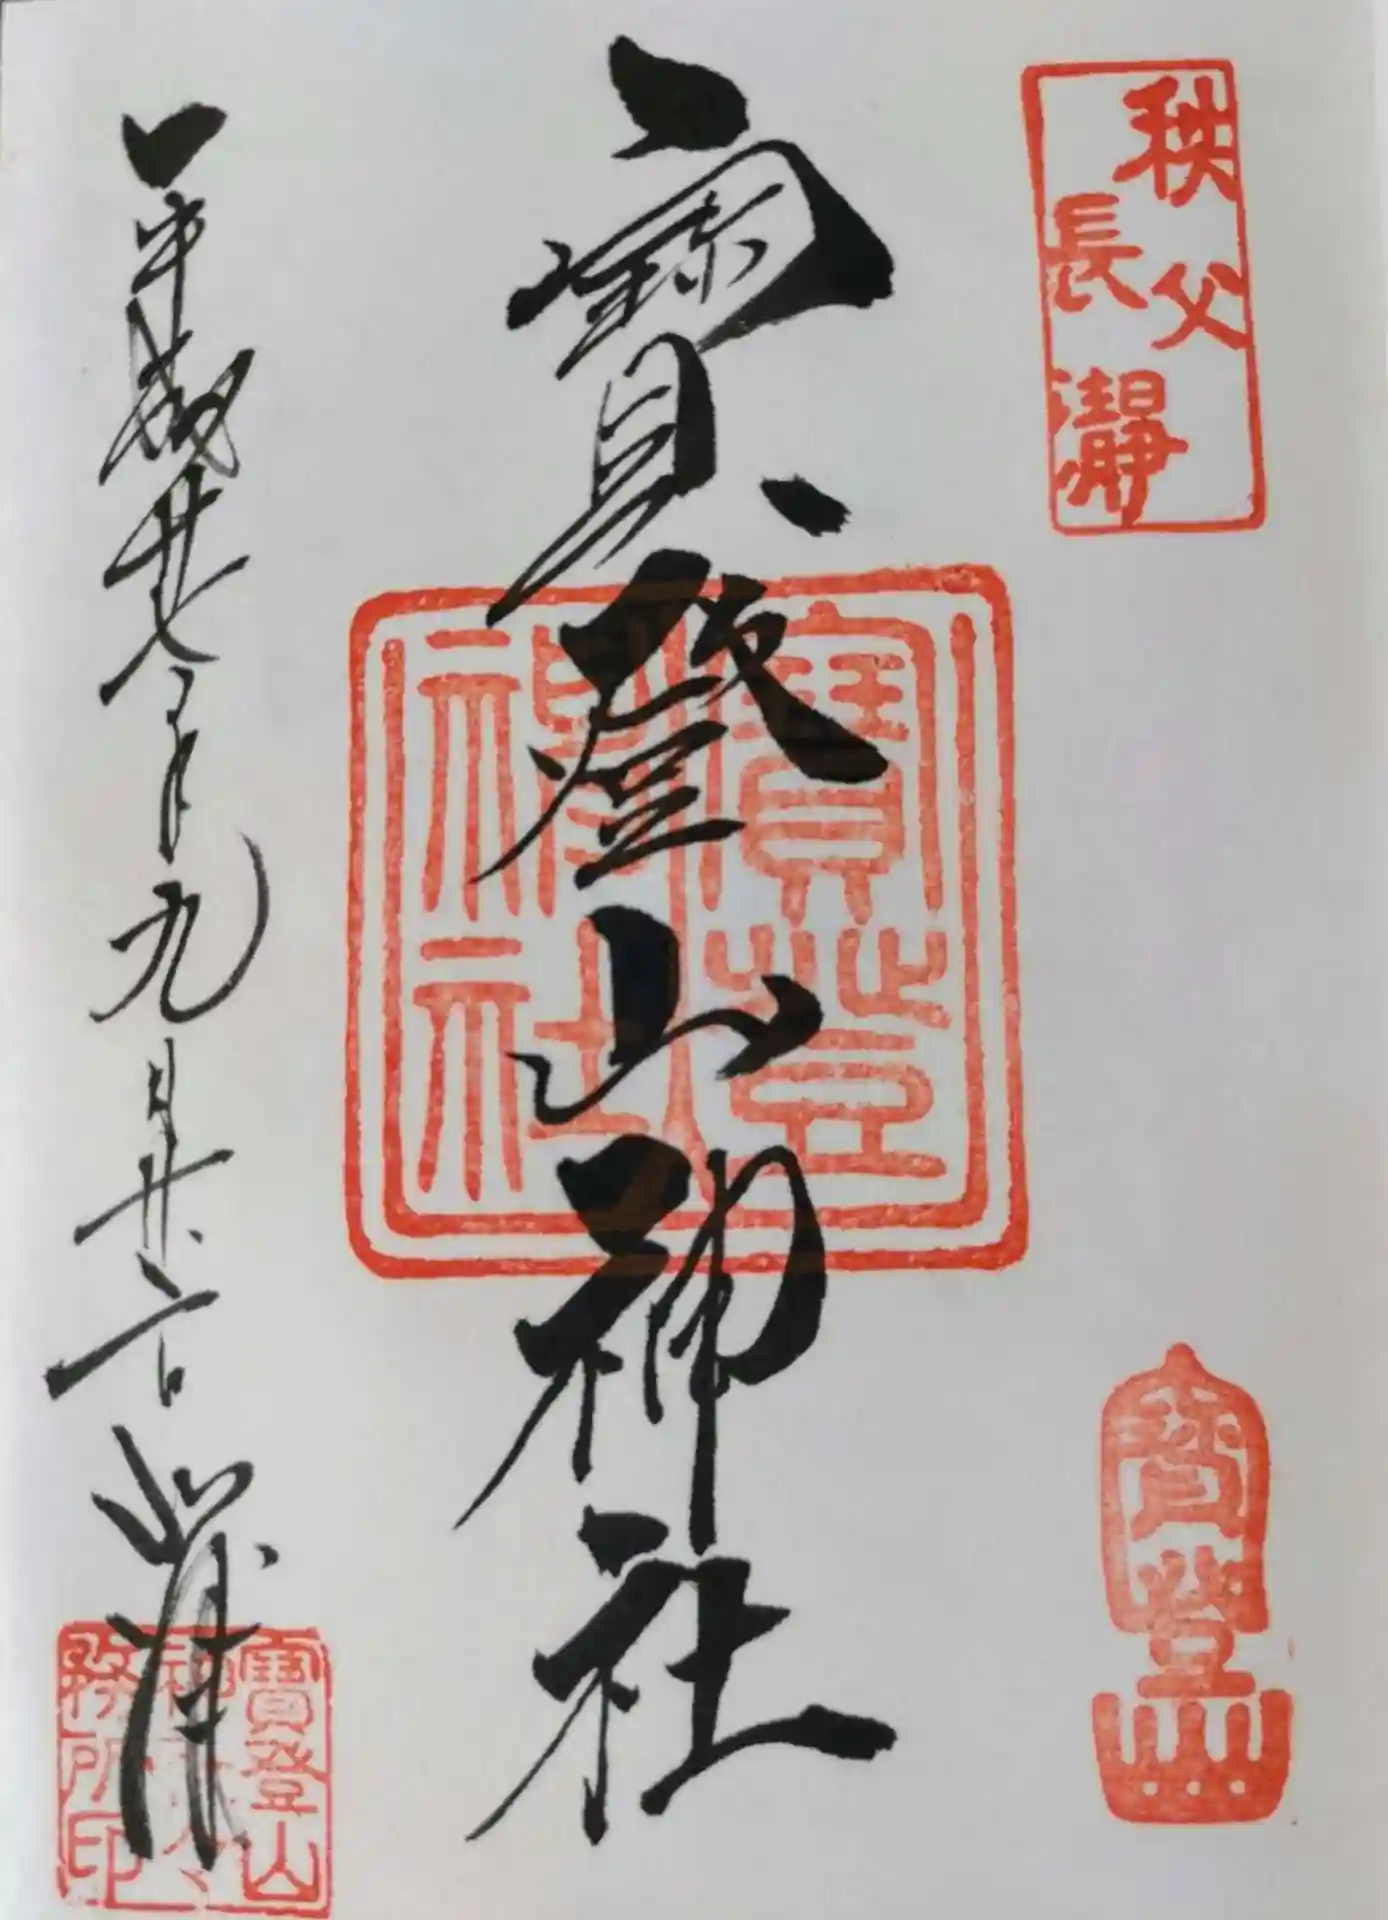 秩父
長瀞
寶登山
寶登山神社
寶登
神社
平成廿七年九月廿六日
寶登山
神社
務所印